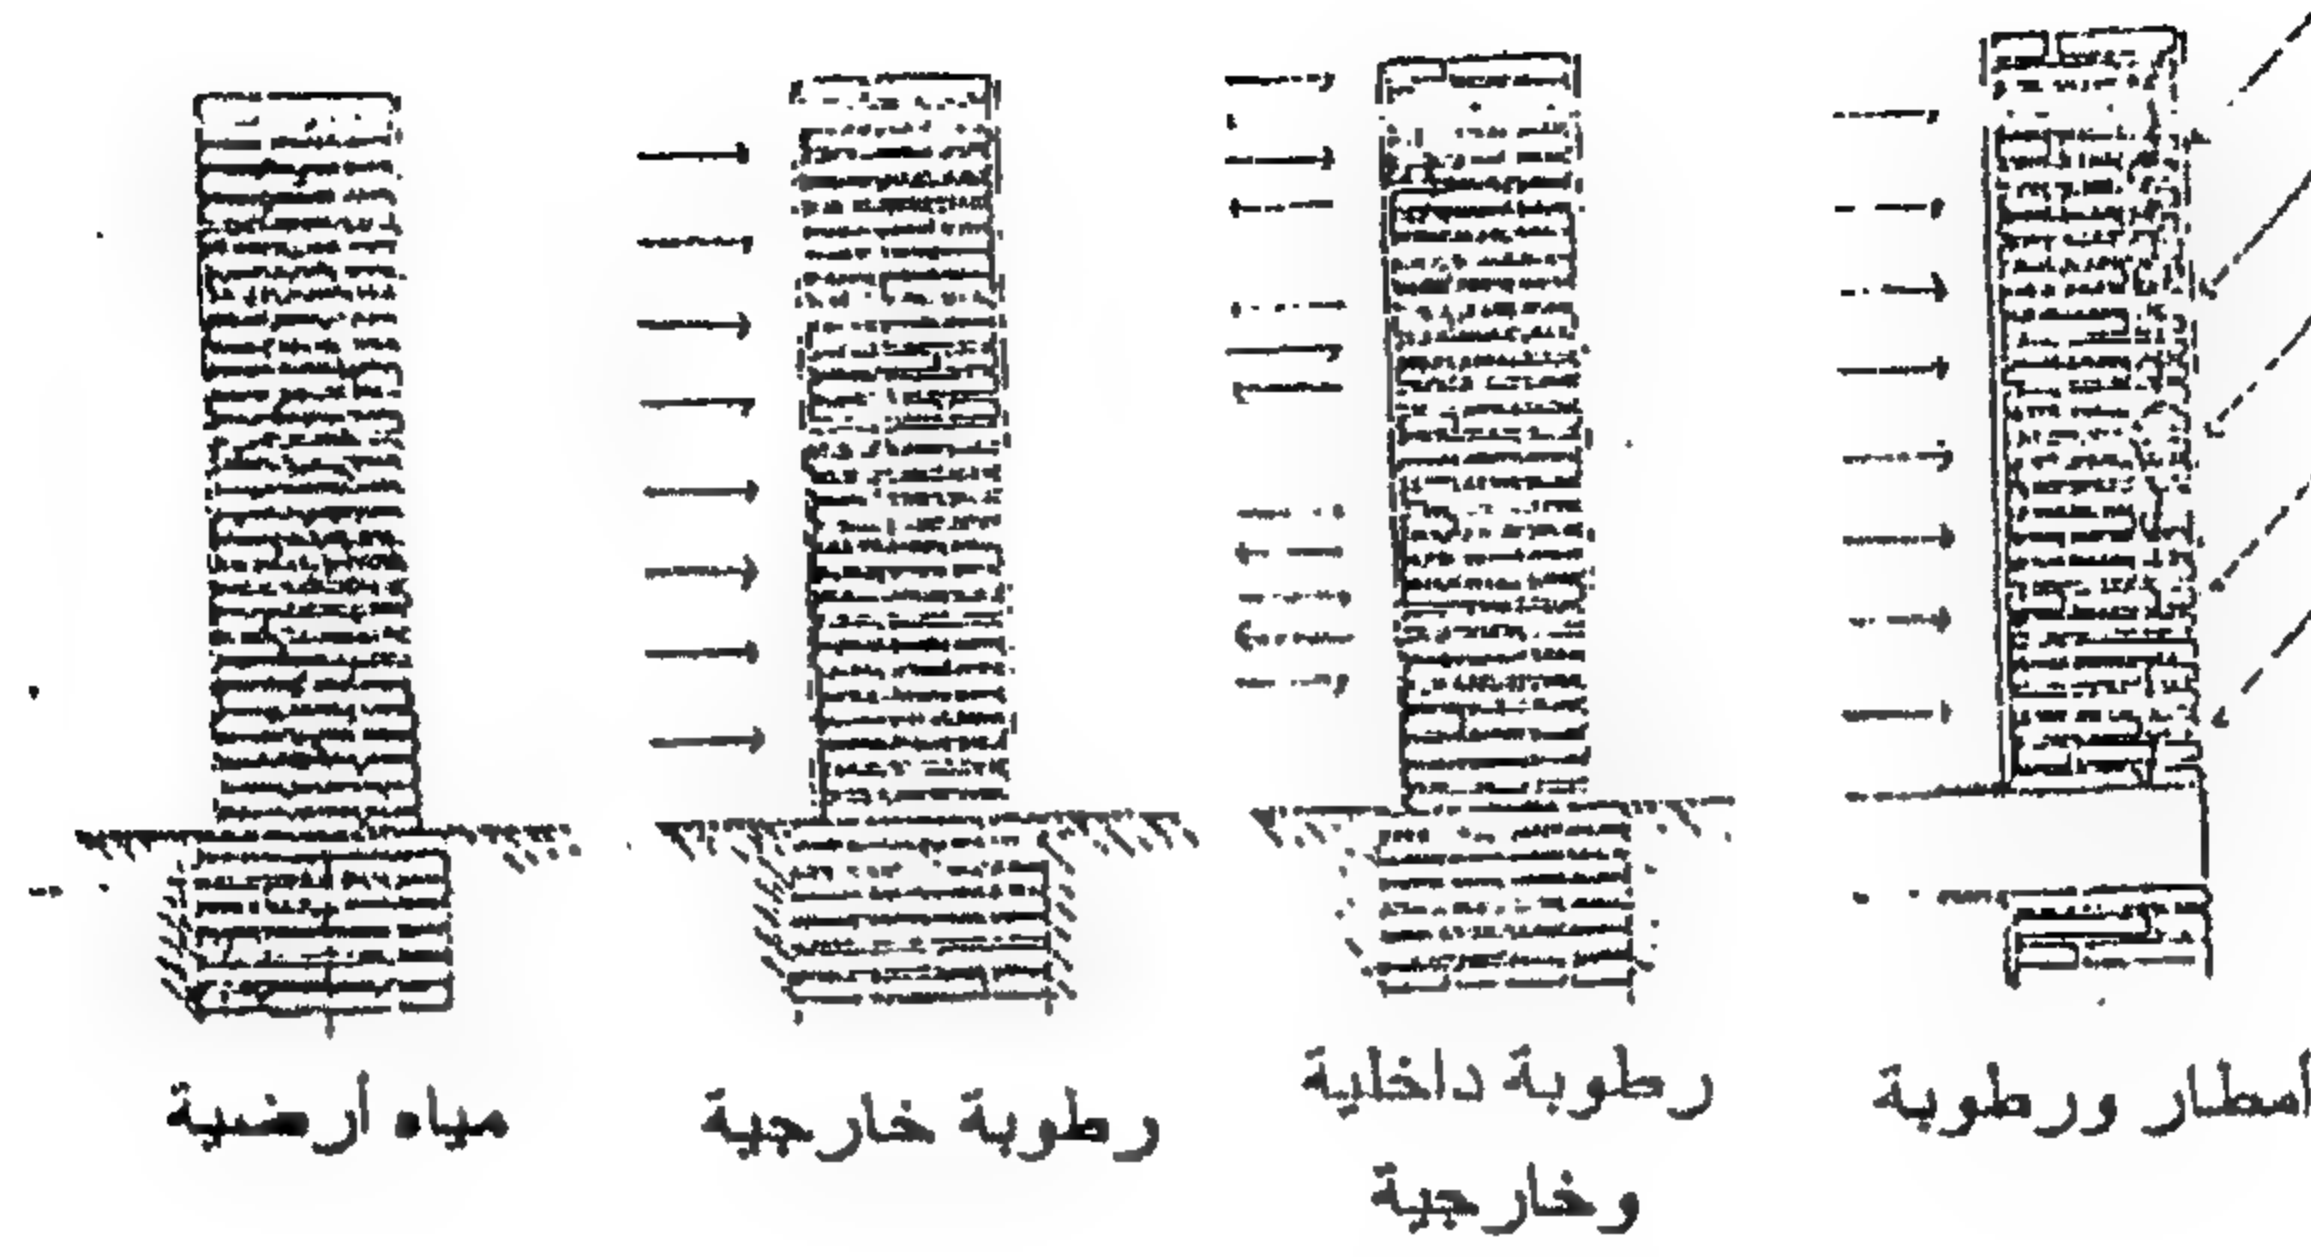 أمطار ورطوبة
رطوبة داخلية
وخارجية
رطوبة خارجية
مياه أرضية